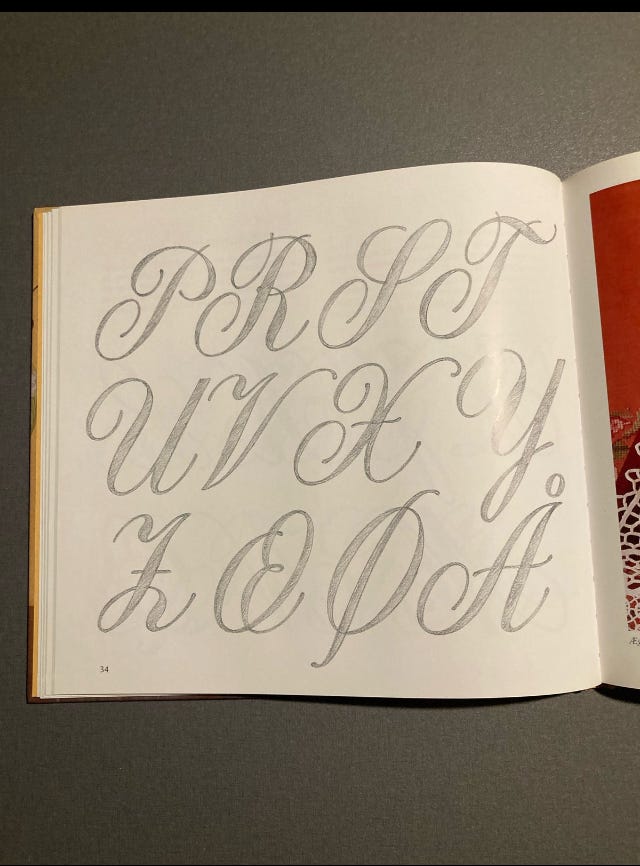 P R S T
U V X Y
Z Æ Ø Å
34